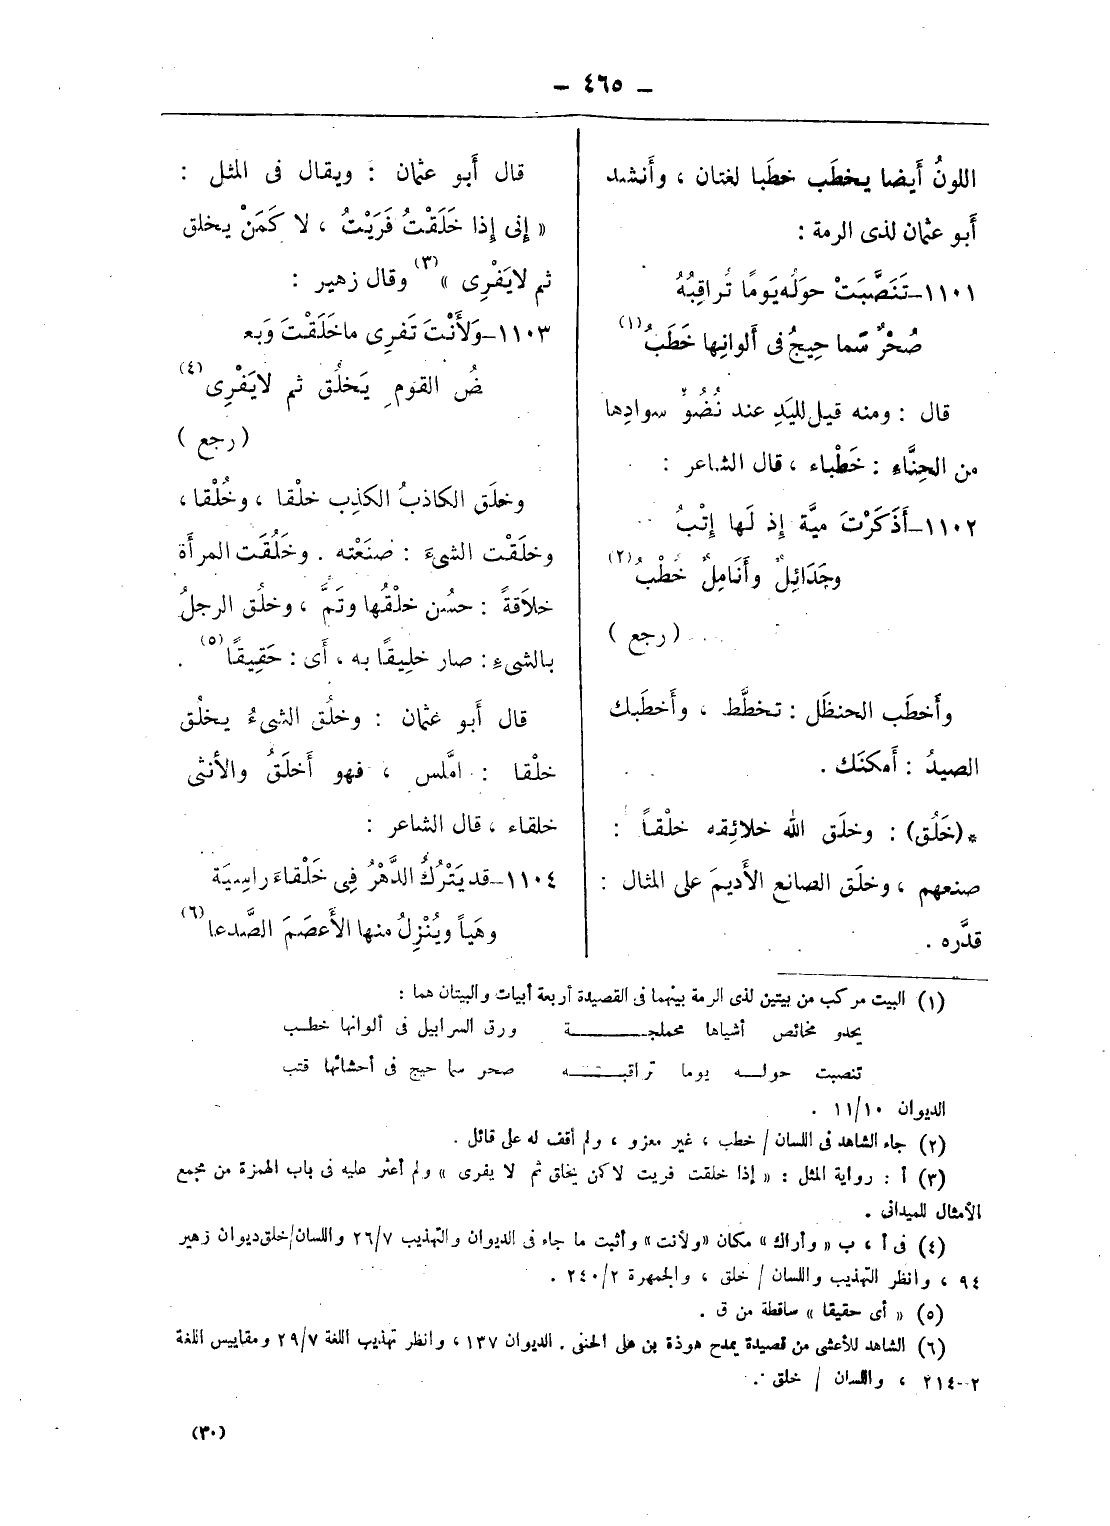 — ٤٦٥ —
اللونُ أَيضا يخطَب خطَبا لغتان ، وأَنشد
أَبو عثمان لذى الرمة :
١١٠١ــ تَنَصَّبَتْ حولُه يَومًا تُراقِبُهُ
صُحْرٌ سَماحِيجُ فى أَلوانِها خَطَبُ (١)
قال : ومنه قيل لليَدِ عند نُضُوِّ سوادِها
من الحِنَّاءِ : خَطْباء ، قال الشاعر :
١١٠٢ــ أَذَكَرْتَ ميَّة إذ لَها إتْبُ
وجَدَائِلٌ وأَنَامِلٌ خُطْبُ (٢)
( رجع )
وأَخطَب الحنظَل : تخطَّط ، وأَخطَبك
الصيدُ : أَمكنَك .
* (خَلُق) : وخلَق الله خلائِقه خلْقاً :
صنعهم ، وخلَق الصانع الأَديمَ على المثال :
قدَّره .
قال أَبو عثمان : ويقال فى المثل :
« إنى إذا خَلَقْتُ فَرَيْتُ ، لا كَمَنْ يخلق
ثم لايَفْرِى » (٣) وقال زهير :
١١٠٣ــ وَلأَنْتَ تَفرِى ماخَلَقْتَ وَبع
ضُ القومِ يَخلُق ثم لايَفْرِى (٤)
( رجع )
وخلَق الكاذبُ الكذِب خلْقا ، وخُلْقا ،
وخلَقْت الشىءَ : صنَعْته . وخَلُقَت المرأة
خلاَقةً : حسُن خلْقُها وتَمَّ ، وخلُق الرجلُ
بالشىءِ : صار خلِيقًا به ، أَى : حَقِيقًا (٥) .
قال أَبو عثمان : وخلُق الشىءُ يخلُق
خلْقا : امَّلس ، فهو أَخلَقُ والأُنثى
خلقاء ، قال الشاعر :
١١٠٤ــ قد يَتْرُكُ الدَّهْرُ فِى خَلْقاءَ راسِيَة
وهَياً ويُنْزِلُ منها الأَعصَمَ الصَّدعا (٦)
(١) البيت مركب من بيتين لذى الرمة بينهما فى القصيدة أربعة أبيات والبيتان هما :
يحدو نحائص أشباها محملجـــــــة ورق السرابيل فى ألوانها خطب
تنصبت حولـــه يوما تراقبـــــــه صحر سماحيج فى أحشائها قبب
الديوان ١١/١٠ .
(٢) جاء الشاهد فى اللسان / خطب ، غير معزو ، ولم أقف له على قائل .
(٣) أ : رواية المثل : « إذا خلقت فريت لاكمن يخلق ثم لا يفرى » ولم أعثر عليه فى باب الهمزة من مجمع
الأمثال للميدانى .
(٤) فى أ ، ب « وأراك » مكان «ولأنت» وأثبت ما جاء فى الديوان والتهذيب ٢٦/٧ واللسان/خلق ديوان زهير
٩٤ ، وانظر التهذيب واللسان / خلق ، والجمهرة ٢٤٠/٢ .
(٥) « أى حقيقا » ساقطة من ق .
(٦) الشاهد للأعشى من قصيدة يمدح هوذة بن على الحنفى . الديوان ١٣٧ ، وانظر تهذيب اللغة ٢٩/٧ ومقاييس اللغة
٢ــ٢١٤ ، واللسان / خلق .
(٣٠)